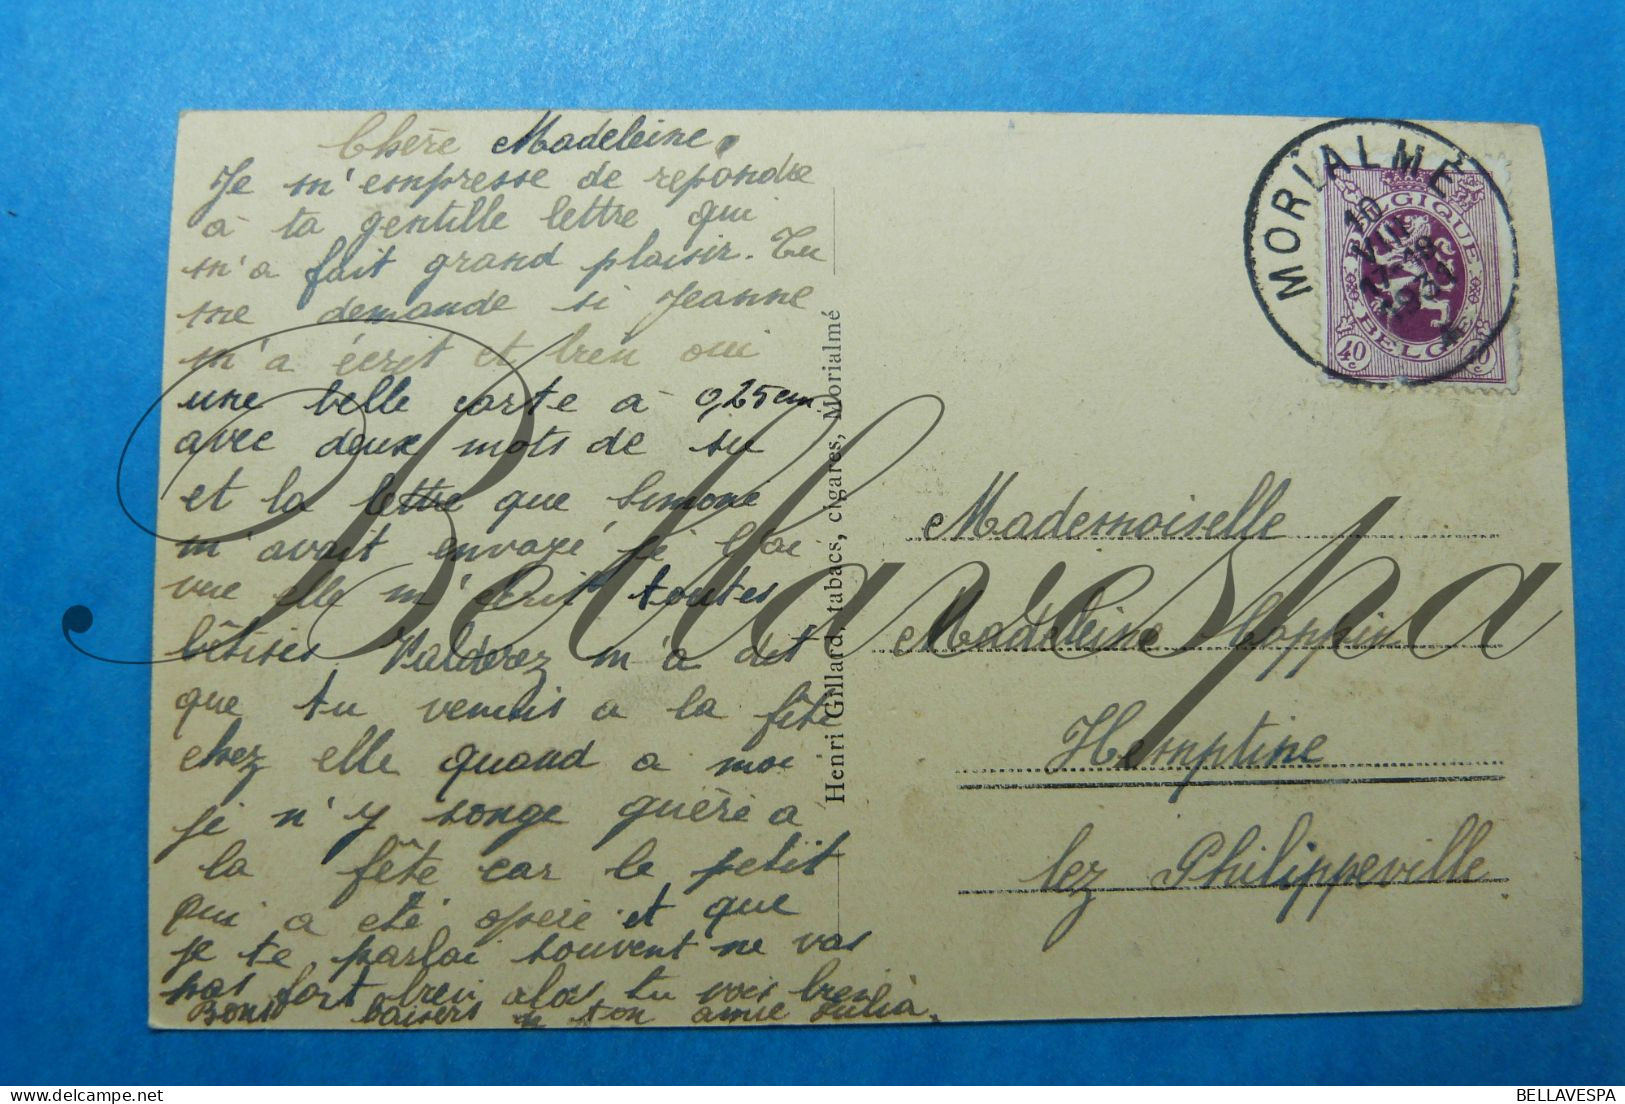 Chère Madeleine,
Je m'empresse de repondre
à ta gentille lettre qui
m'a fait grand plaisir. Tu
me demande si Jeanne
m'a écrit et bien oui
une belle carte à 0,25 cm
avec deux mots de su
et la lettre que Simone
m'avait envoyé je l'ai
vue elle m'écrit toutes
bêtises Valderez m'a dit
que tu venais a la fête
chez elle quand a moi
je n'y songe guère a
la fête car le petit
qui a été opéré et que
je te parlai souvent ne vas
pas fort bien alors tu vois bien
Bons baisers de ton amie Julia.
Henri Gillard, tabacs, cigares, Morialmé
MORIALMÉ
10
VIII
17-18
BELGIQUE
BELGIE
40 c
40 c
Mademoiselle
Madeleine Coppin
Hemptine
lez Philippeville
Bellavespa
BELLAVESPA